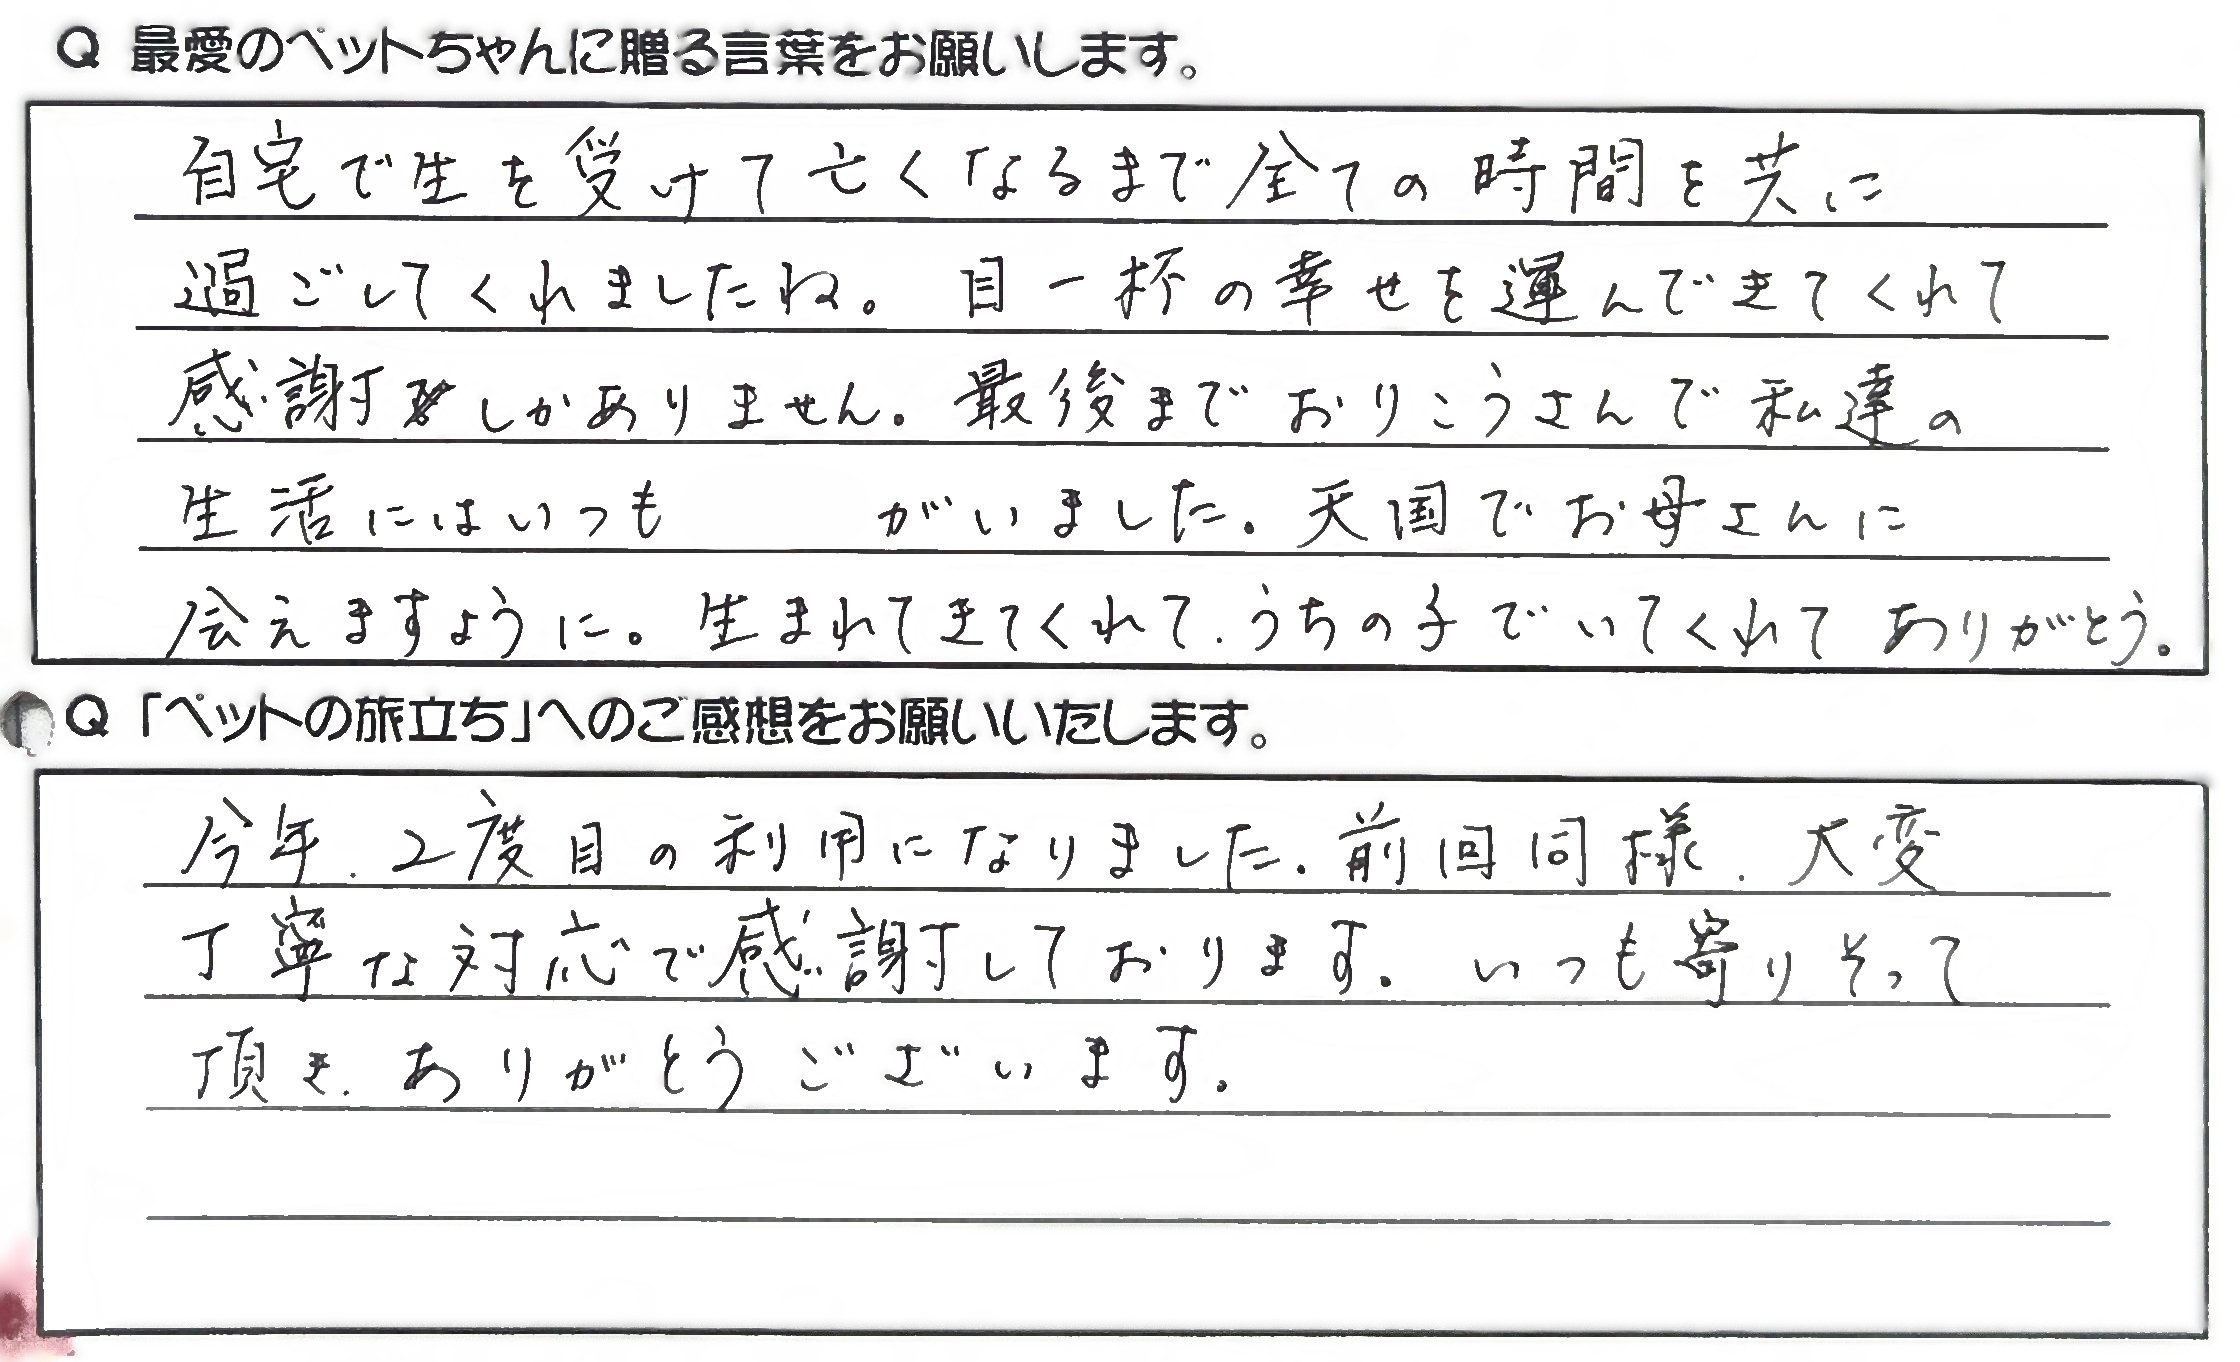 Q 最愛のペットちゃんに贈る言葉をお願いします。
自宅で生を受けて亡くなるまで全ての時間を共に
過ごしてくれましたね。目一杯の幸せを運んできてくれて
感謝しかありません。最後までおりこうさんで私達の
生活にはいつも　　　がいました。天国でお母さんに
会えますように。生まれてきてくれて、うちの子でいてくれてありがとう。
Q 「ペットの旅立ち」へのご感想をお願いいたします。
今年、2度目の利用になりました。前回同様、大変
丁寧な対応で感謝しております。いつも寄りそって
頂き、ありがとうございます。